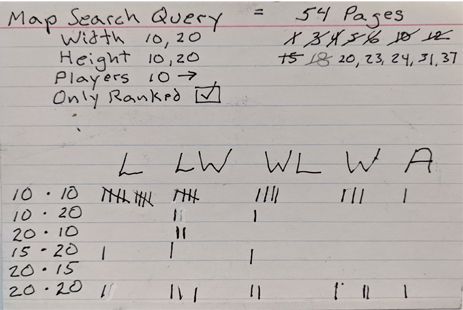 Map Search Query = 54 Pages
Width 10, 20
Height 10, 20 15 18 20, 23, 24, 31, 37
Players 10 →
Only Ranked ☑
L LW WL W A
10 · 10
10 · 20
20 · 10
15 · 20
20 · 15
20 · 20